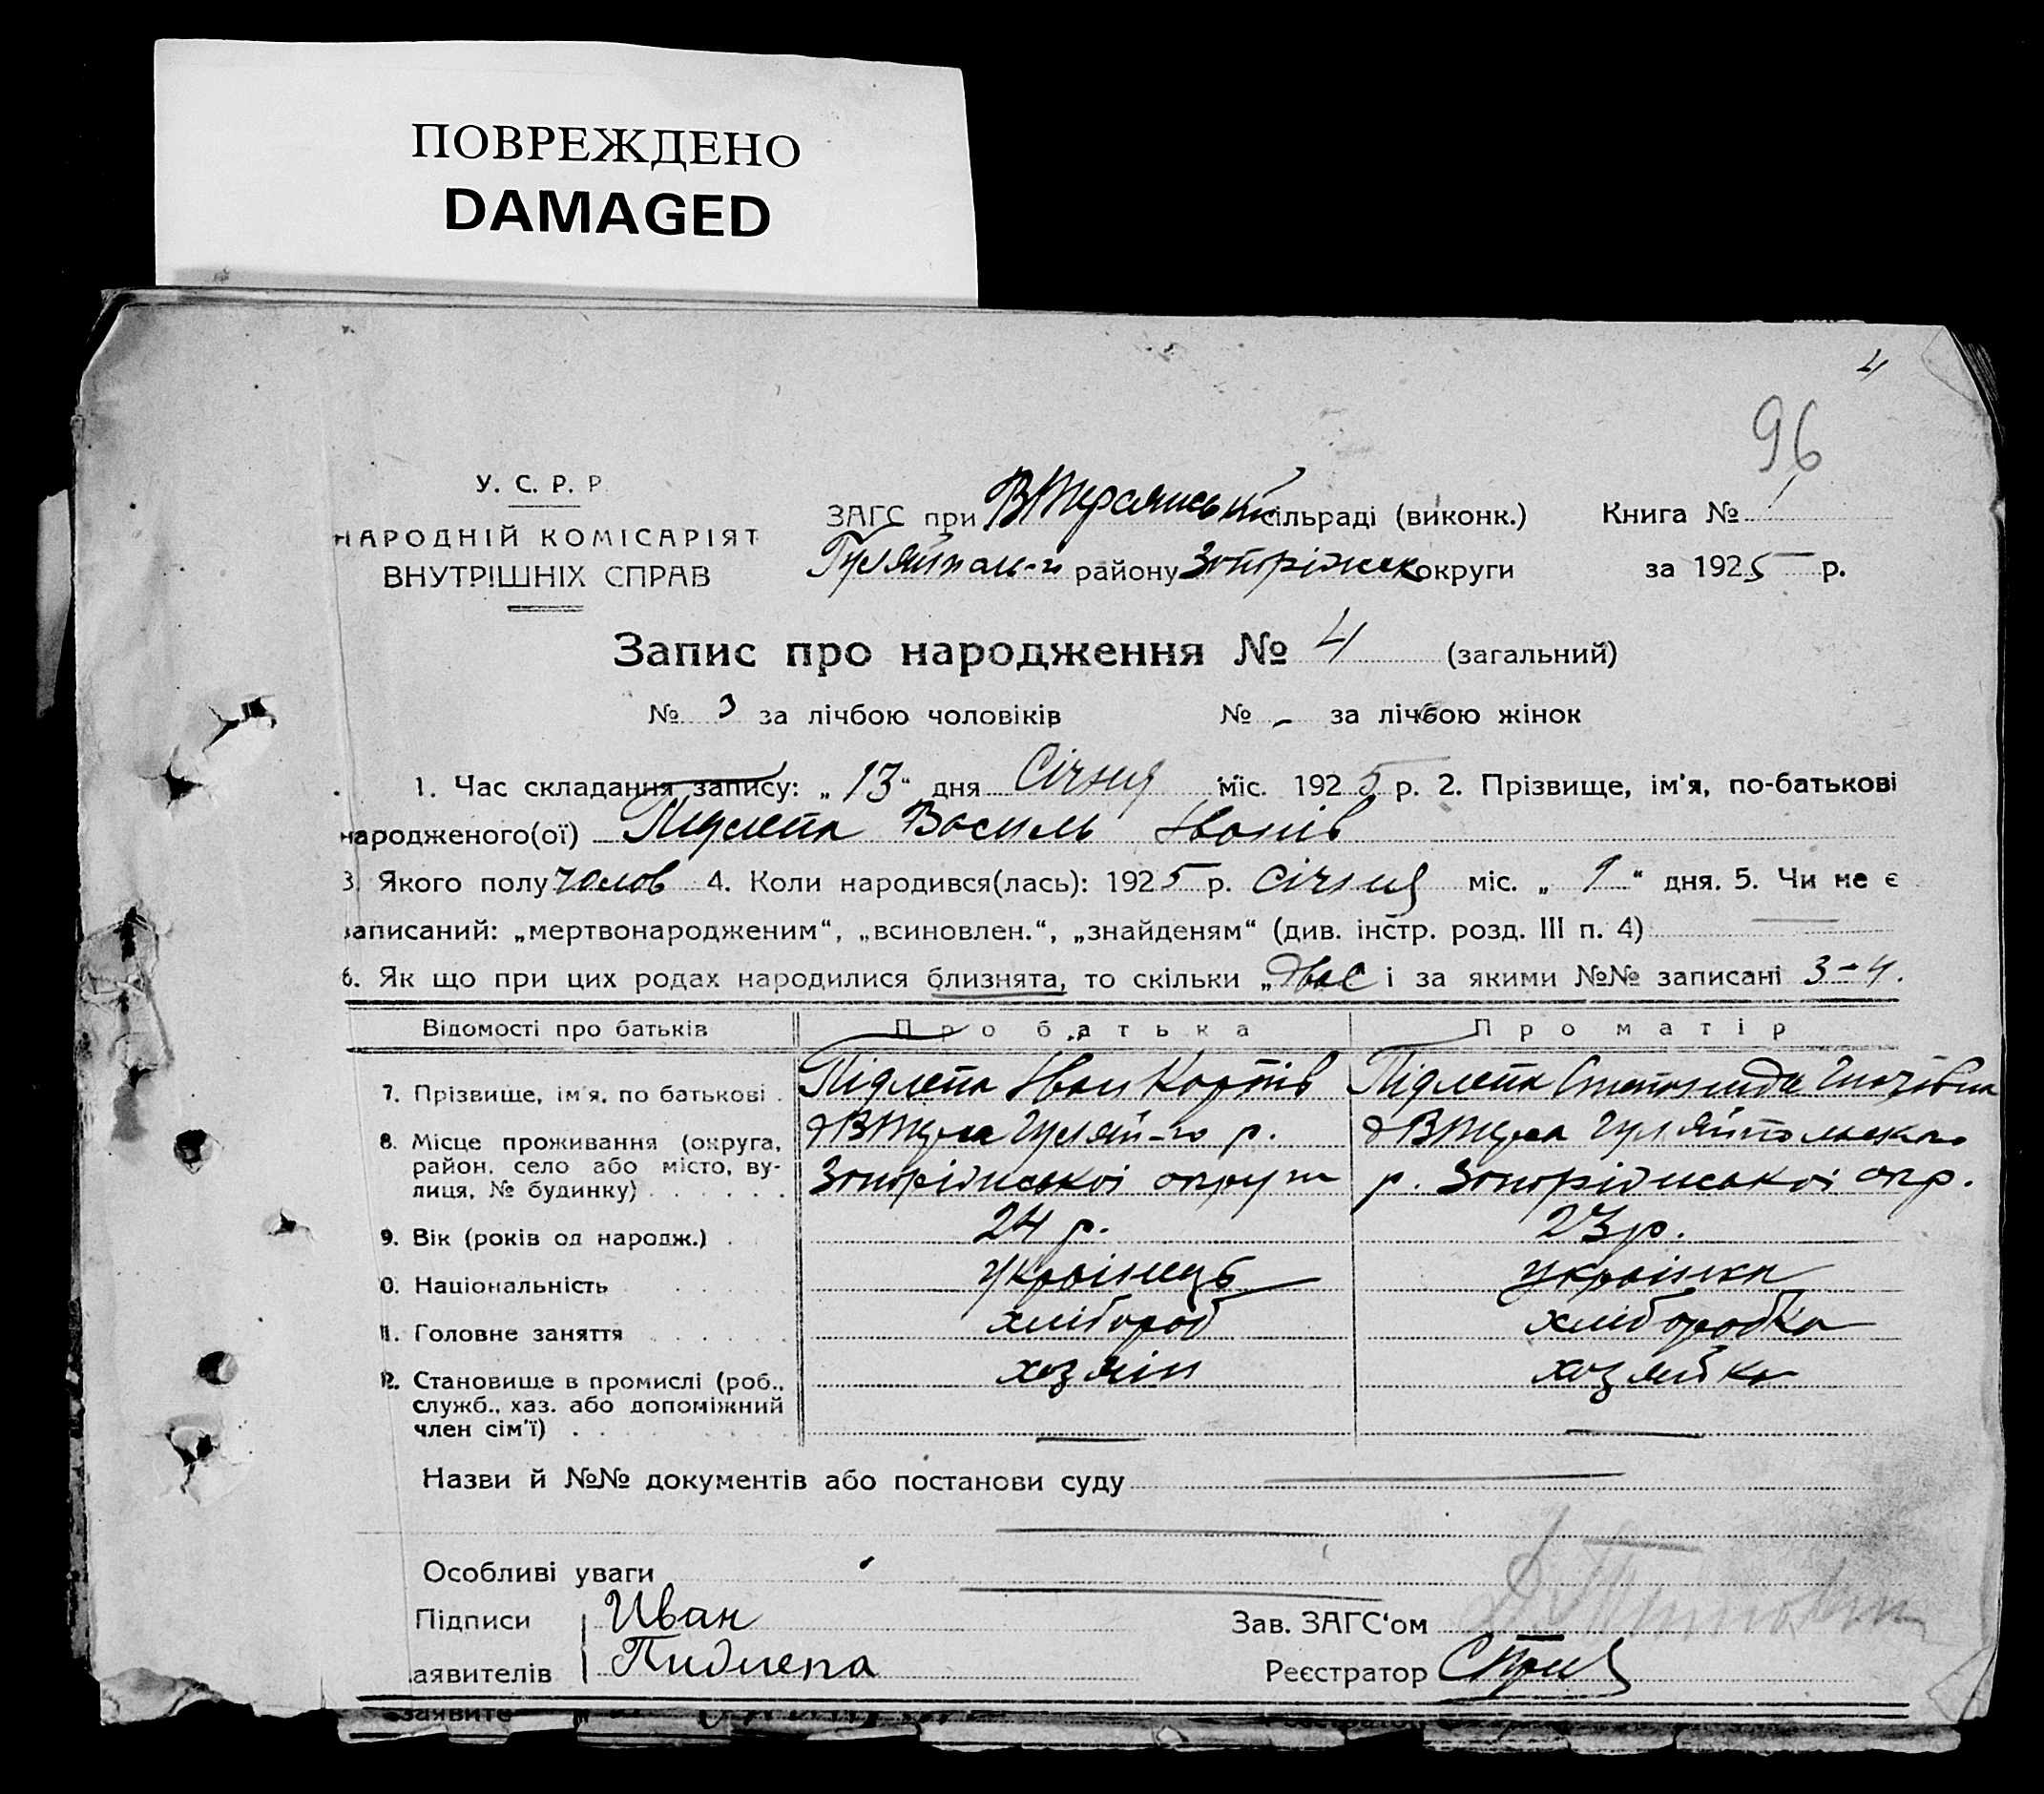 ПОВРЕЖДЕНО
DAMAGED
4
96
У. С. Р. Р
НАРОДНІЙ КОМІСАРІЯТ
ВНУТРІШНІХ СПРАВ
ЗАГС при ВТерсянській сільраді (виконк.) Книга №
Гуляйпол-го району Запоріжськ округи за 1925 р.
Запис про народження № 4 (загальний)
№ 3 за лічбою чоловіків № - за лічбою жінок
1. Час складання запису: „13“ дня Січня міс. 1925 р. 2. Прізвище, ім'я, по-батькові
народженого(ої) Підлепа Василь Іванів
3. Якого полу чолов 4. Коли народився(лась): 1925 р. січня міс. „ 9 “ дня. 5. Чи не є
записаний: „мертвонародженим“, „всиновлен.“, „знайденям“ (див. інстр. розд. III п. 4)
6. Як що при цих родах народилися близнята, то скільки „двоє і за якими №№ записані 3-4.
Відомості про батьків Про батька Про матір
7. Прізвище, ім'я, по батькові . Підлепа Іван Карпів Підлепа
8. Місце проживання (округа, район, село або місто, вулиця, № будинку) . . . . . .
Гуляй-го р. Гуляйпольского
Запоріжської округи р. Запоріжської окр.
9. Вік (років од народж.) . 24 р. 23 р.
0. Національність українець українка
11. Головне заняття хлібороб хліборобка
12. Становище в промислі (роб., хозяїн хозяйка
служб., хаз. або допоміжний
член сім'ї) . .
Назви й №№ документів або постанови суду
Особливі уваги
Підписи Иван Зав. ЗАГС'ом
аявителів Пидлепа Реєстратор
заявите